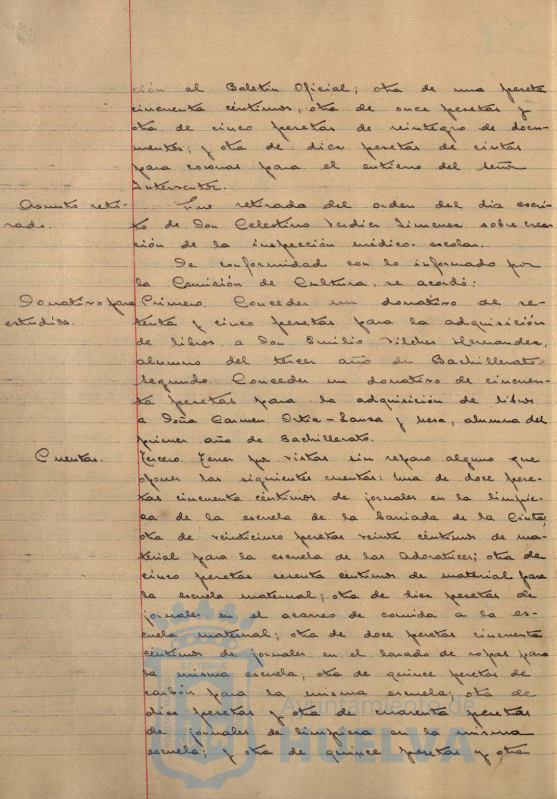 ción al Boletín Oficial; otra de una peseta
cincuenta céntimos, otra de once pesetas y
otra de cinco pesetas de reintegro de docu-
mentos; y otra de diez pesetas de cintas
para coronas para el entierro del Señor
Interventor.
Asunto reti-
rado.
Fue retirada del orden del día escri-
to de Don Celestino Verdier Jimenez sobre crea-
ción de la inspección médico-escolar.
De conformidad con lo informado por
la Comisión de Cultura, se acordó:
Donativo para
estudios.
Primero. Conceder un donativo de se-
tenta y cinco pesetas para la adquisición
de libros, a Don Emilio Vilches Hernandez,
alumno del tercer año de Bachillerato.
Segundo. Conceder un donativo de cincuen-
ta pesetas para la adquisición de libros
a Doña Carmen Ortiz- y , alumna del
primer año de Bachillerato.
Cuentas.
Tercero. Tener por vistas sin reparo alguno que
oponer las siguientes cuentas: Una de doce pese-
tas cincuenta céntimos de jornales en la limpie-
za de la escuela de la barriada de la Cinta;
otra de veinticinco pesetas veinte céntimos de ma-
terial para la escuela de las Adoratrices; otra de
cinco pesetas sesenta céntimos de material para
la escuela maternal; otra de diez pesetas de
jornales en el acarreo de comida a la es-
cuela maternal; otra de doce pesetas cincuenta
céntimos de jornales en el lavado de ropas para
la misma escuela; otra de quince pesetas de
carbón para la misma escuela; otra de
diez pesetas y otra de cuarenta pesetas
de jornales de limpieza en la misma
escuela; y otra de quince pesetas y otra
Ayuntamiento de
HUELVA